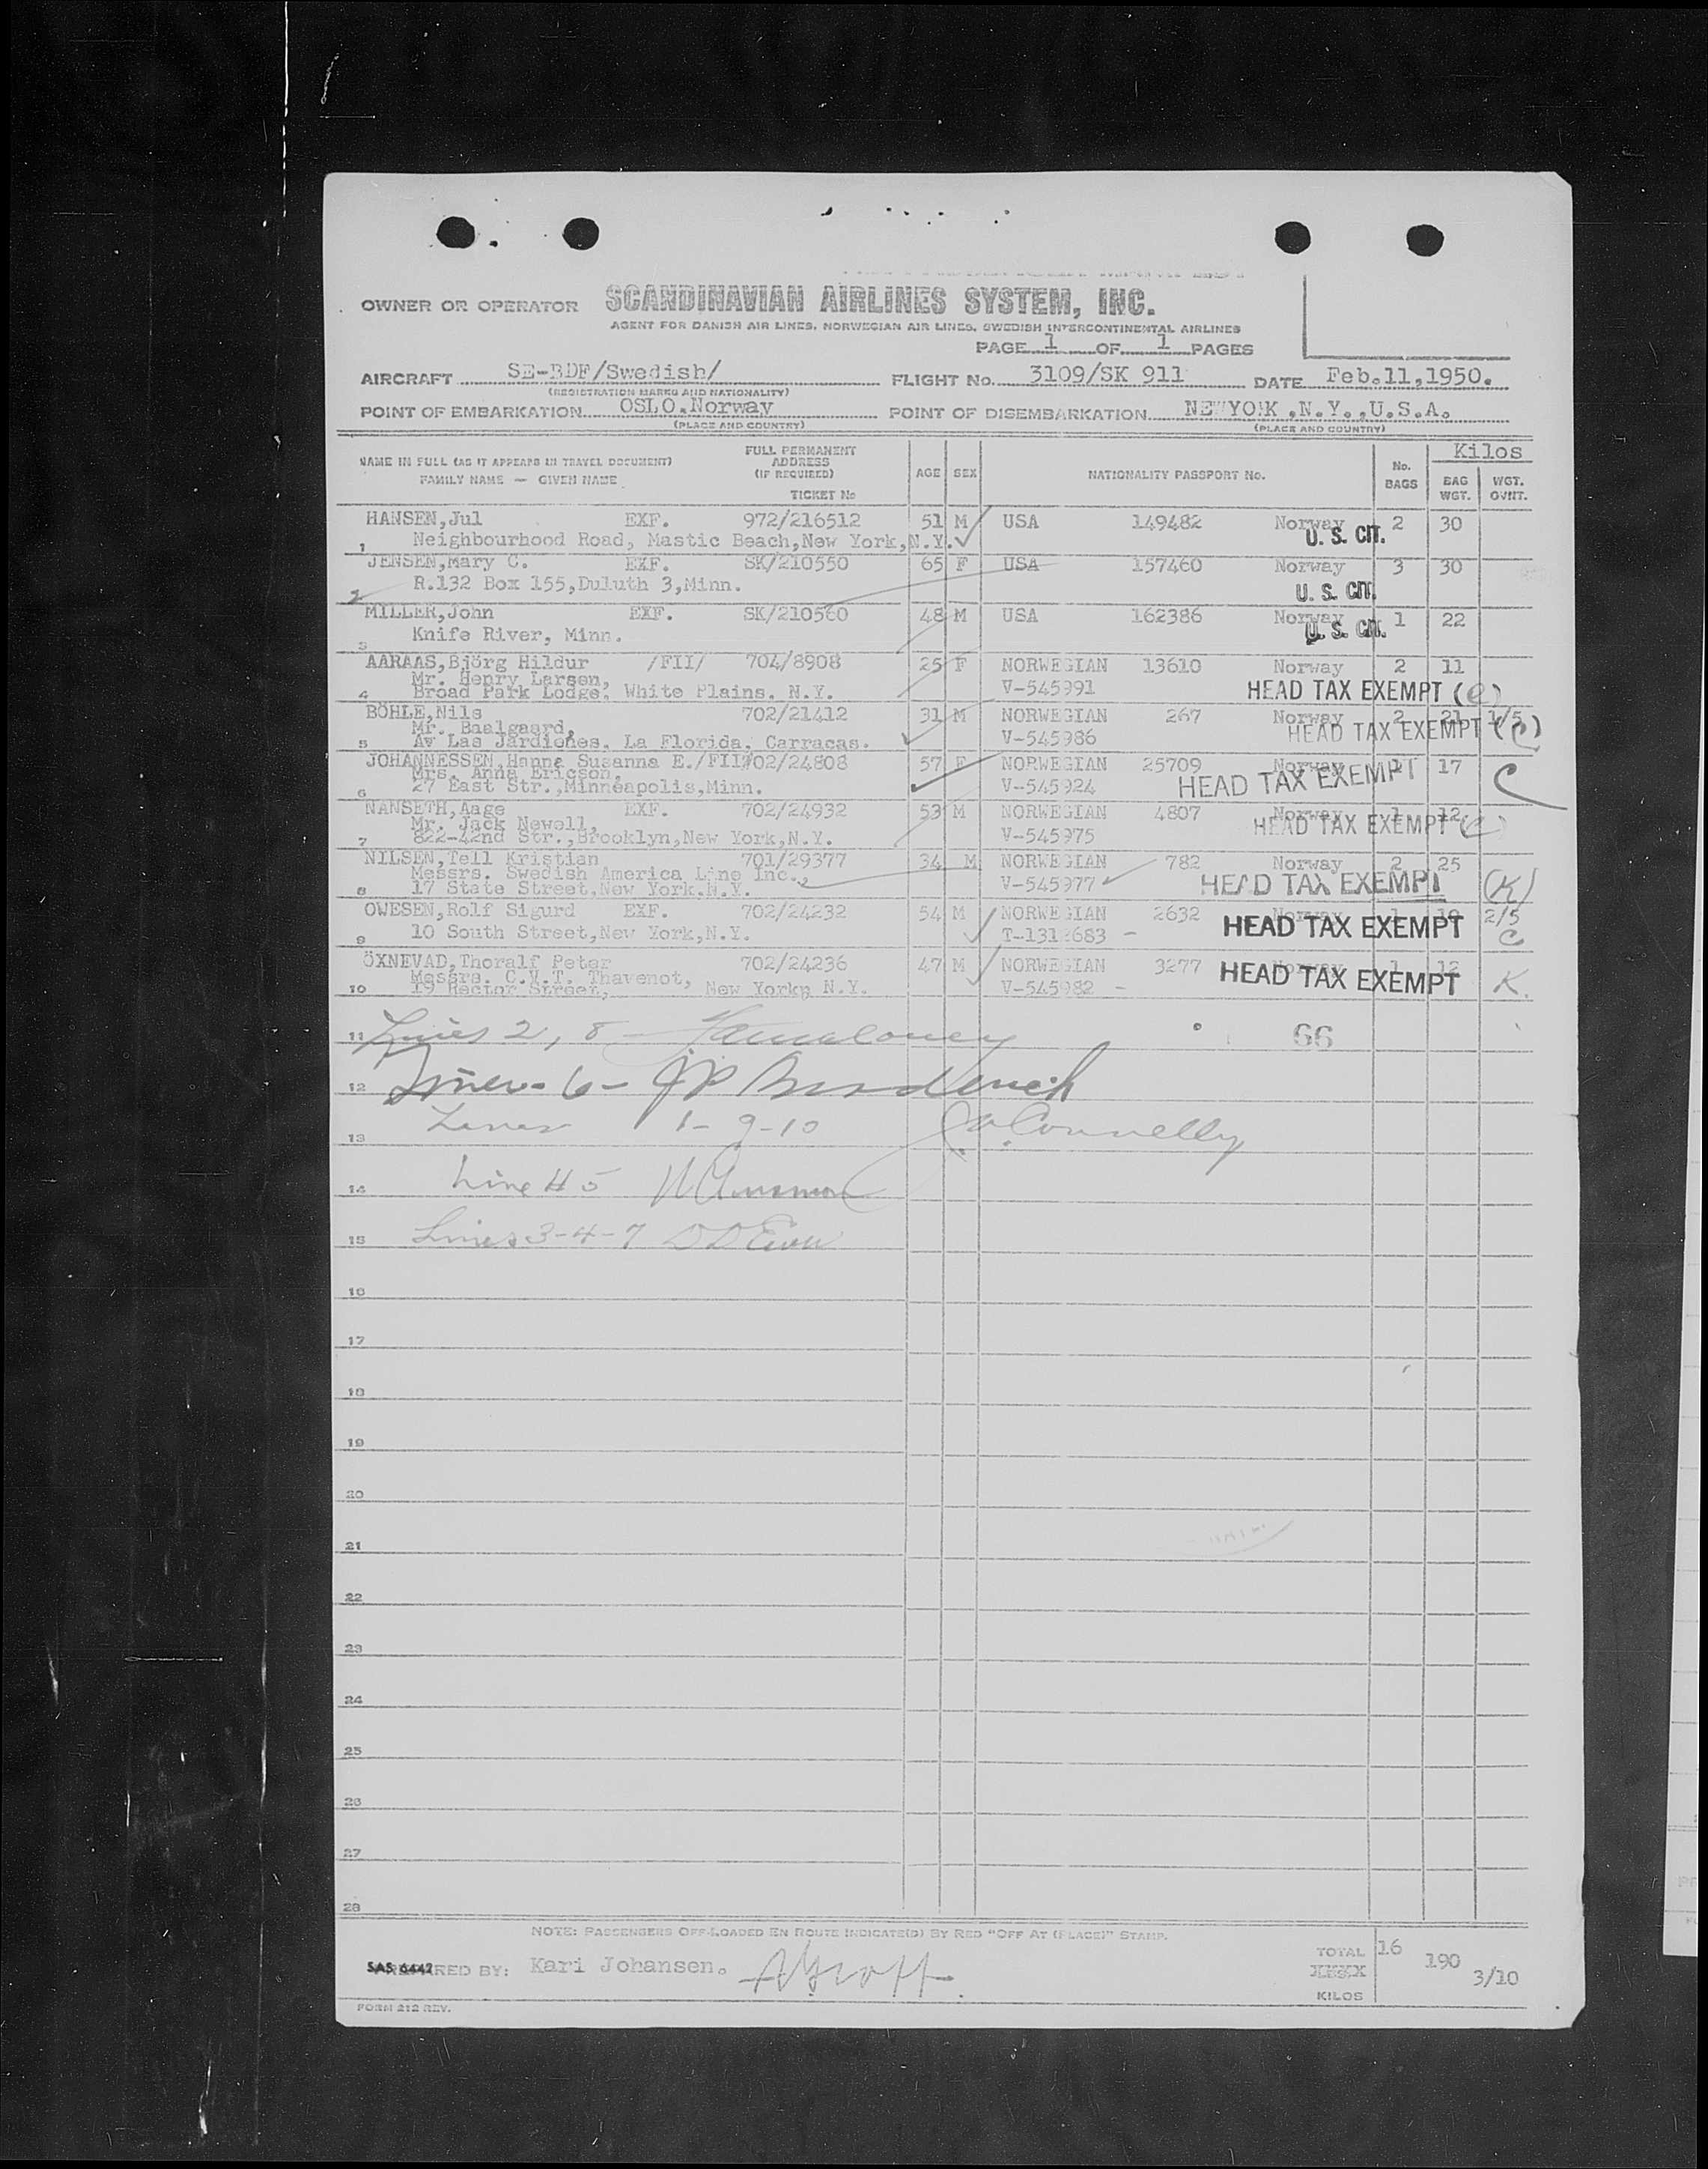 OWNER OR OPERATOR SCANDINAVIAN AIRLINES SYSTEM, INC.
AGENT FOR DANISH AIR LINES, NORWEGIAN AIR LINES, SWEDISH INTERCONTINENTAL AIRLINES
PAGE 1 OF 1 PAGES
AIRCRAFT SE-BDF/Swedish/ FLIGHT No. 3109/SK 911 DATE Feb.11,1950.
(REGISTRATION MARKS AND NATIONALITY)
POINT OF EMBARKATION OSLO.Norway POINT OF DISEMBARKATION NEWYORK ,N.Y.,U.S.A.
(PLACE AND COUNTRY) (PLACE AND COUNTRY)
NAME IN FULL (AS IT APPEARS IN TRAVEL DOCUMENT)
FAMILY NAME — GIVEN NAME
FULL PERMANENT ADDRESS (IF REQUIRED)
TICKET No
AGE SEX NATIONALITY PASSPORT No. No. BAGS Kilos BAG WGT. WGT. OVNT.
HANSEN,Jul EXF. 972/216512 51 M USA 149482 Norway 2 30
1 Neighbourhood Road, Mastic Beach,New York,N.Y. U. S. CIT.
JENSEN,Mary C. EXF. SK/210550 65 F USA 157460 Norway 3 30
2 R.132 Box 155,Duluth 3,Minn. U. S. CIT.
MILLER,John EXF. SK/210560 48 M USA 162386 Norway 1 22
3 Knife River, Minn. U. S. CIT.
AARAAS,Björg Hildur /FII/ 704/8908 25 F NORWEGIAN 13610 Norway 2 11
Mr. Henry Larsen,
4 Broad Park Lodge, White Plains. N.Y. V-545991 HEAD TAX EXEMPT (C)
BÖHLE,Nils 702/21412 31 M NORWEGIAN 267 Norway 2 21 1/5
Mr. Baalgaard,
5 Av Las Jardiones. La Florida. Carracas. V-545986 HEAD TAX EXEMPT (C)
JOHANNESSEN,Hanna Susanna E./FII 702/24808 57 F NORWEGIAN 25709 Norway 1 17
Mrs. Anna Ericson,
6 27 East Str.,Minneapolis,Minn. V-545924 HEAD TAX EXEMPT C
NANSETH,Aage EXF. 702/24932 53 M NORWEGIAN 4807 Norway 1 12
Mr. Jack Newell,
7 822-42nd Str.,Brooklyn,New York,N.Y. V-545975 HEAD TAX EXEMPT (C)
NILSEN,Tell Kristian 701/29377 34 M NORWEGIAN 782 Norway 2 25
Messrs. Swedish America Line Inc.,
8 17 State Street,New York.N.Y. V-545977 HEAD TAX EXEMPT (K)
OWESEN,Rolf Sigurd EXF. 702/24232 54 M NORWEGIAN 2632 Norway 1 10 2/5
9 10 South Street,New York,N.Y. HEAD TAX EXEMPT C
ÖXNEVAD,Thoralf Peter 702/24236 47 M NORWEGIAN 3277 Norway 1 12
Messrs. C.V.T. Thavenot,
10 19 Rector Street, New York, N.Y. V-545982 HEAD TAX EXEMPT K.
11 Lines 2, 8 66
12 Lines 6
13 Lines 1-9-10 Connelly
14 Line # 5
15 Lines 3-4-7
16
17
18
19
20
21
22
23
24
25
26
27
28
NOTE: PASSENGERS OFF-LOADED EN ROUTE INDICATE(D) BY RED "OFF AT (PLACE)" STAMP.
SAS 6442 PREPARED BY: Kari Johansen. TOTAL KILOS 16 190 3/10
FORM 212 REV.